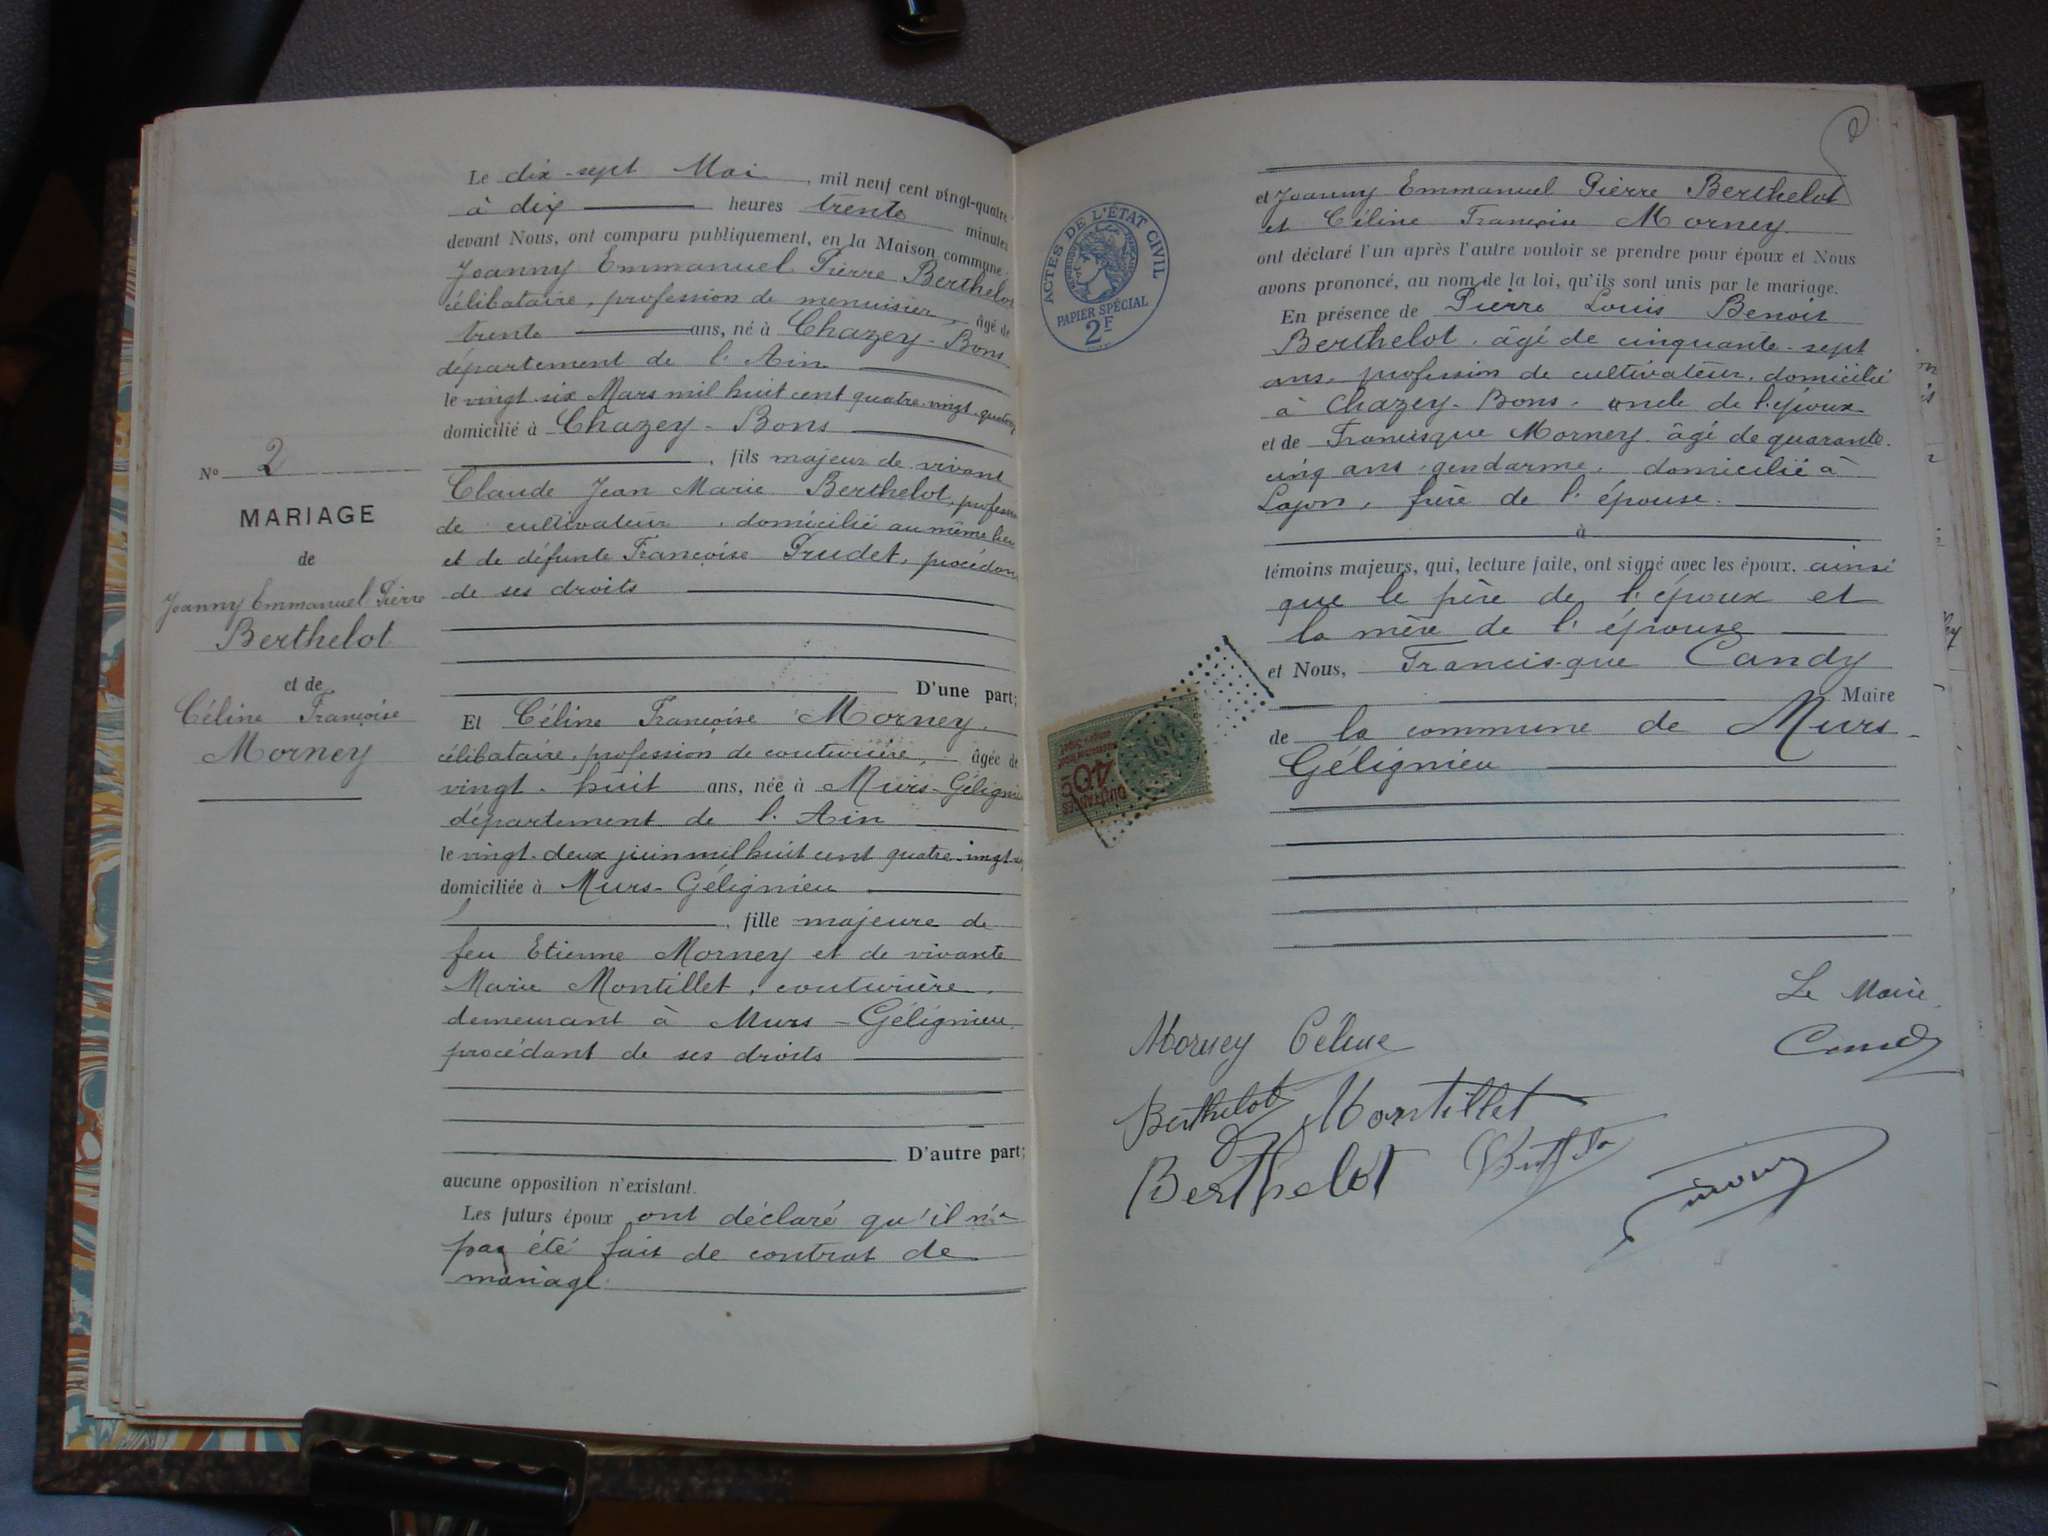 Le dix-sept Mai, mil neuf cent vingt-quatre
à dix heures trente minutes
devant Nous, ont comparu publiquement, en la Maison commune:
Joanny Emmanuel Pierre Berthelot
célibataire, profession de menuisier, âgé de
trente ans, né à Chazey-Bons
département de l'Ain
le vingt-six Mars mil huit cent quatre-vingt-quatorze
domicilié à Chazey-Bons
, fils majeur de vivant
Claude Jean Marie Berthelot, profession
de cultivateur, domicilié au même lieu
et de défunte Françoise Prudet, procédant
de ses droits
D'une part;
Et Céline Françoise Morney,
célibataire, profession de couturière, âgée de
vingt-huit ans, née à Murs-Gélignieu
département de l'Ain
le vingt-deux juin mil huit cent quatre-vingt
domiciliée à Murs-Gélignieu
, fille majeure de
feu Etienne Morney et de vivante
Marie Montillet, couturière,
demeurant à Murs-Gélignieu,
procédant de ses droits
D'autre part;
aucune opposition n'existant.
Les futurs époux ont déclaré qu'il n'a
pas été fait de contrat de
mariage.
No 2
MARIAGE
de
Joanny Emmanuel Pierre
Berthelot
et de
Céline Françoise
Morney
et Joanny Emmanuel Pierre Berthelot
et Céline Françoise Morney
ont déclaré l'un après l'autre vouloir se prendre pour époux et Nous
avons prononcé, au nom de la loi, qu'ils sont unis par le mariage.
En présence de Pierre Louis Benoit
Berthelot, âgé de cinquante-sept
ans, profession de cultivateur, domicilié
à Chazey-Bons, oncle de l'époux
et de Francisque Morney âgé de quarante-
cinq ans, gendarme, domicilié à
Loyon, frère de l'épouse.
à
témoins majeurs, qui, lecture faite, ont signé avec les époux, ainsi
que le père de l'époux et
la mère de l'épouse
et Nous, Francisque Candy
Maire
de la commune de Murs-
Gélignieu
ACTES DE L'ÉTAT CIVIL
PAPIER SPÉCIAL
2F
QUITTANCES
40c
Le Maire
Candy
Morney Céline
Berthelot Montillet
Berthelot